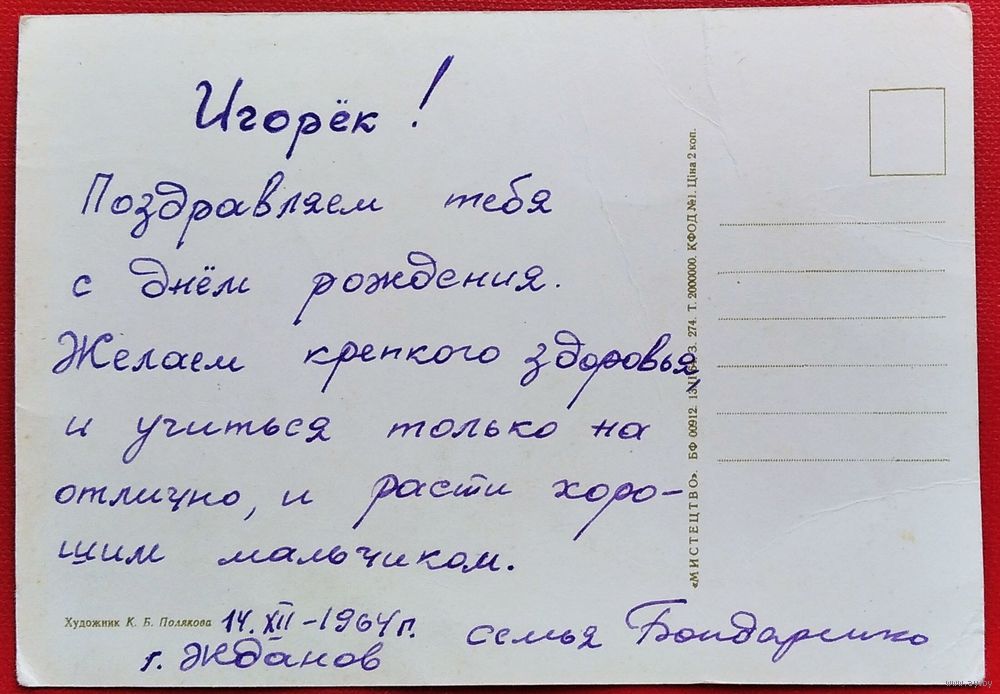 Игорёк!
Поздравляем тебя
с днём рождения.
Желаем крепкого здоровья,
и учиться только на
отлично, и расти хоро-
шим мальчиком.
Художник К. Б. Полякова
14.XII-1964 г.
г. Жданов
семья Бондаренко
«МИСТЕЦТВО». БФ 00912. З. 274. Т. 2000000. КФОД №1. Ціна 2 коп.
www.ay.by